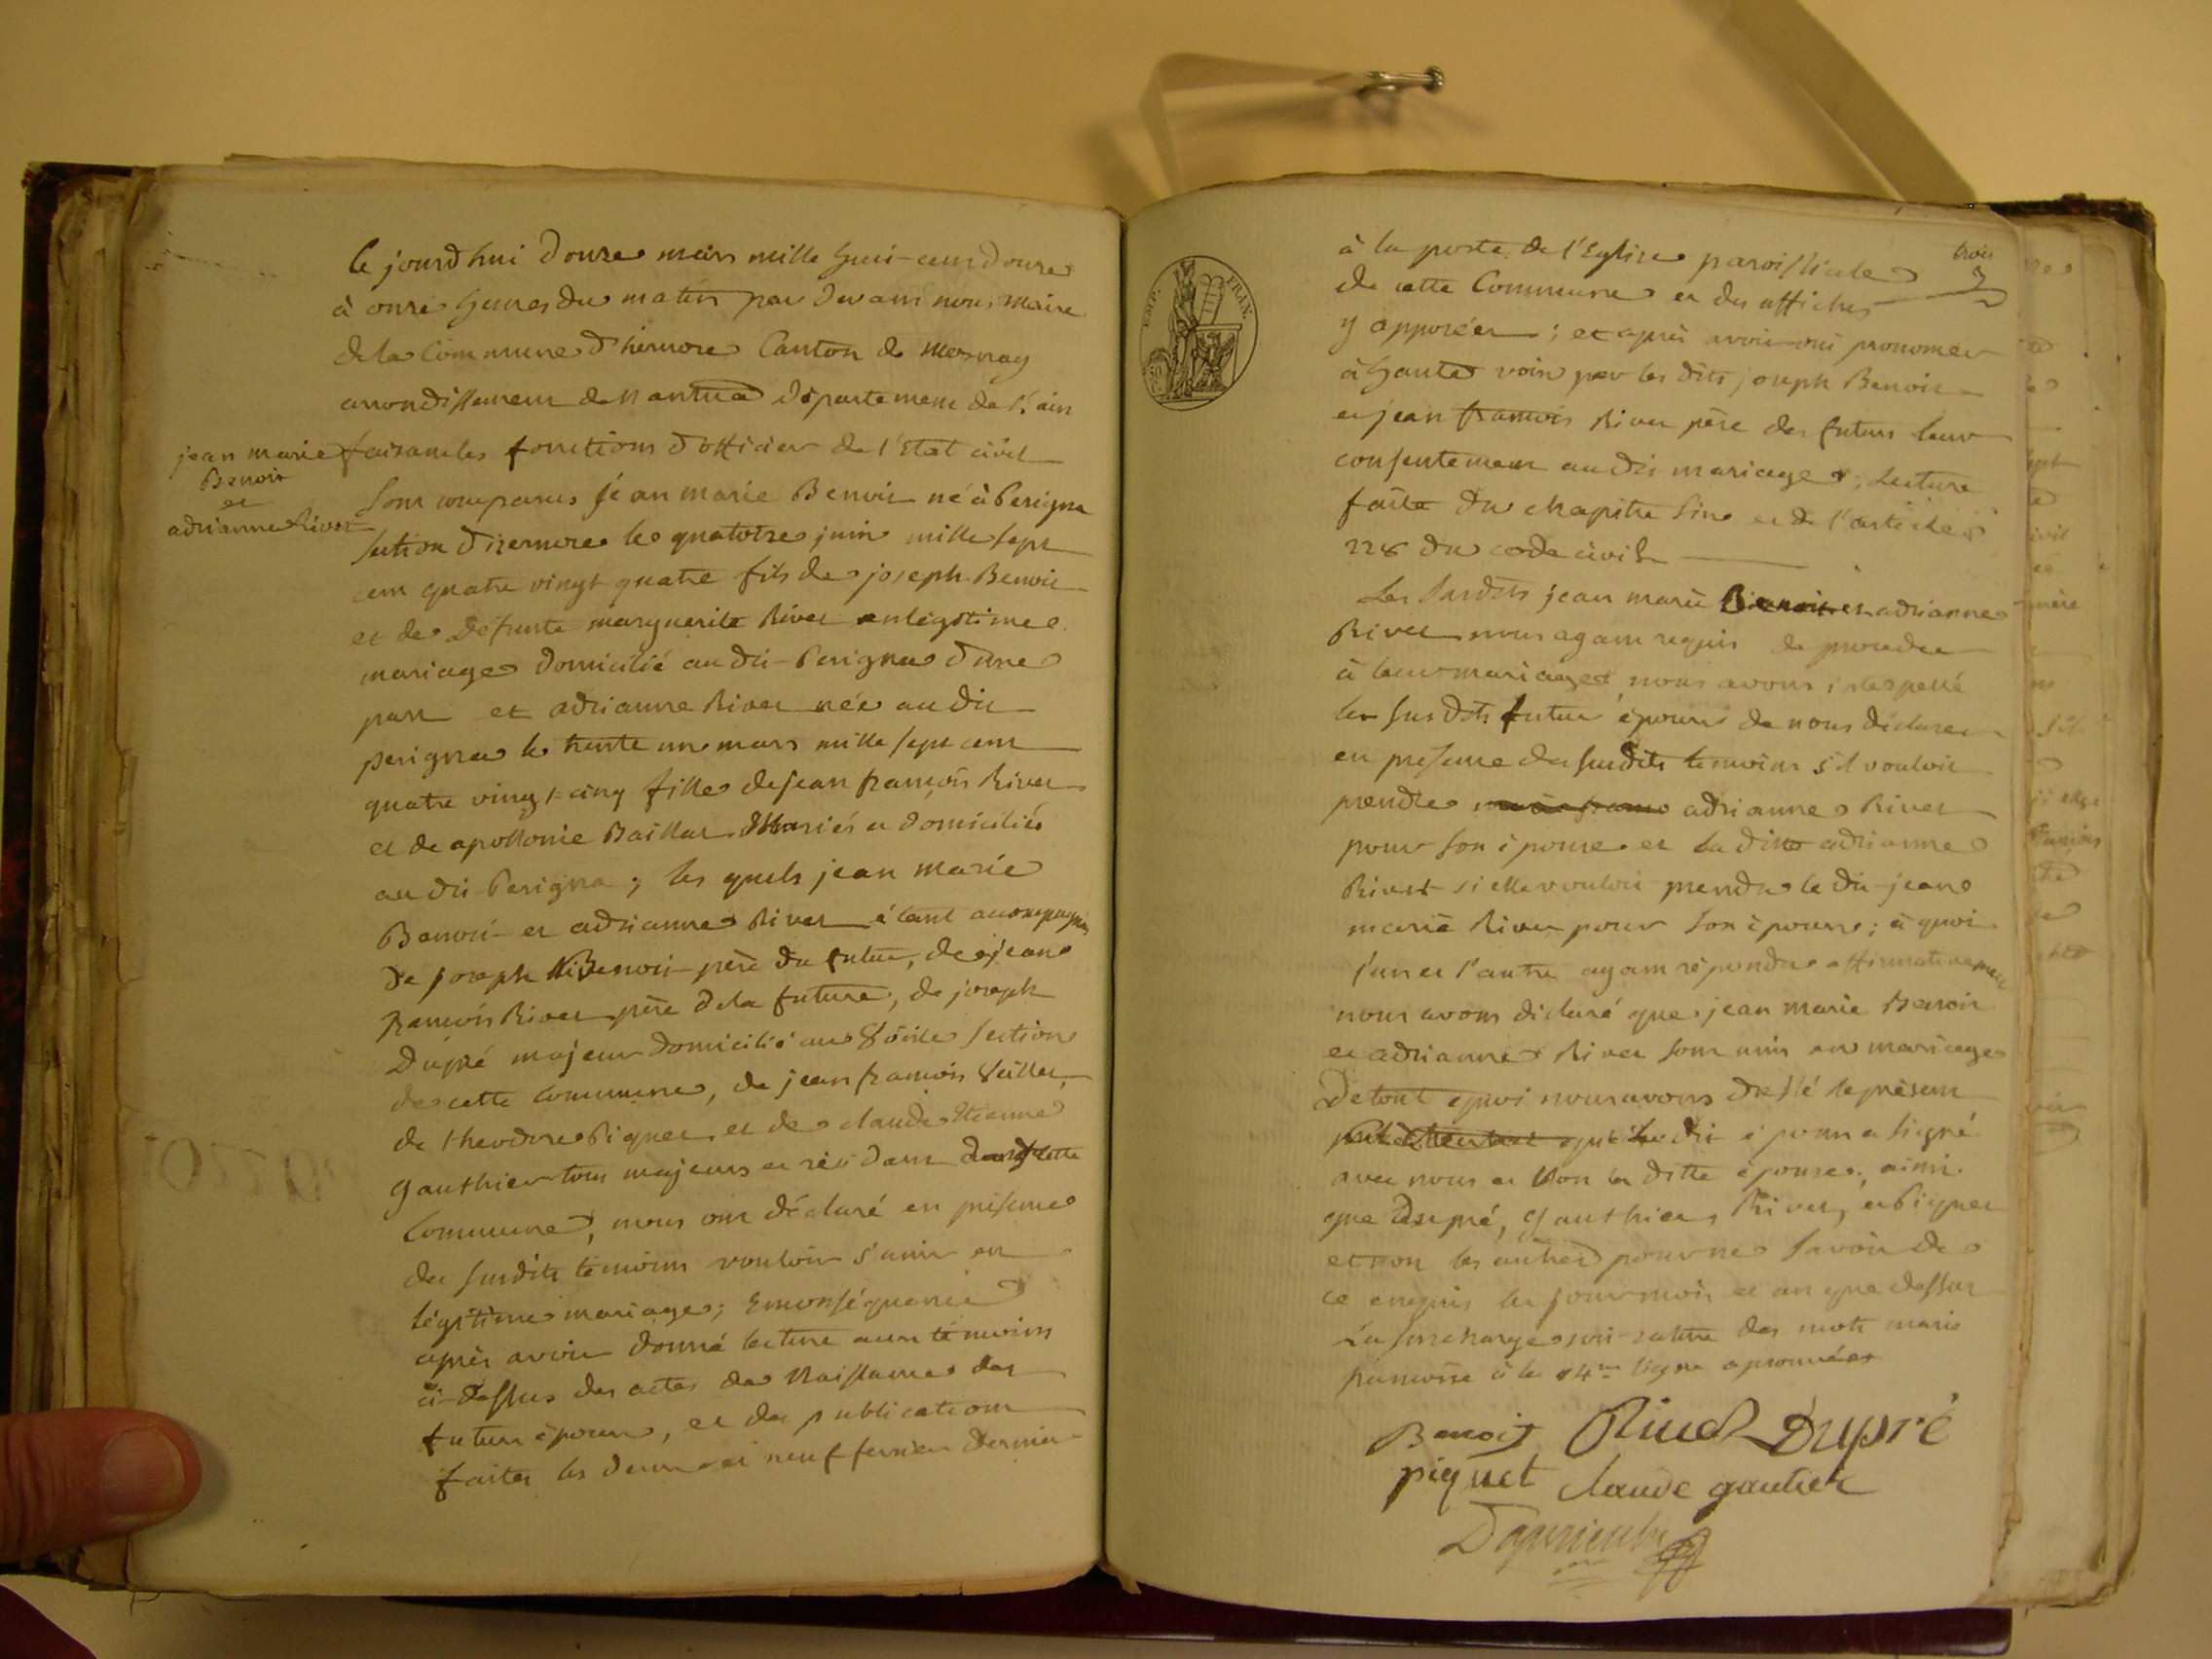 le jourdhui douze mars mille huit-cent douze
à onze heures du matin par devant nous maire
de la Commune d'hizernore Canton de
arrondissement de nantua département de l'ain
jean marie
Benoit
et
adrianne River
faisant les fonctions d'officier de l'Etat civil
sont comparus jean marie Benoit né à Perigna
section d'izernore le quatorze juin mille sept
cent quatre vingt quatre fils de joseph Benoit
et de défunte marguerite River en légitime
mariage domicilié au dit Perigna d'une
part et adrianne River née au dit
perigna le trente un mars mille sept cent
quatre vingt-cinq fille de jean francois River
et de apollonie Baillat mariés et domiciliés
au dit Perigna; les quels jean marie
Benoit et adrianne River étant accompagnés
de joseph Benoit père du futur, de jean
francois River père de la future, de joseph
Dupré majeur domicilié au section
de cette commune, de jean francois
de theodore Piquet et de claude Etienne
gauthier tous majeurs et résidant dans cette
Commune, nous ont déclaré en présence
des susdits témoins vouloir s'unir en
légitime mariage; En conséquence
après avoir donné lecture aux témoins
ci-dessus des actes de Naissance des
futurs époux, et des publications
faites les deux et neuf fevrier dernier
trois
3
à la porte de l'Eglise paroissiale
de cette Commune et des affiches
y apposées; et après avoir oui prononcer
à haute voix par les dits joseph Benoit
et jean francois River père des futurs leur
consentement au dit mariage; Lecture
faite du chapitre six et de l'article
228 du code civil
Les susdits jean marie Benoit et adrianne
River nous ayant requis de proceder
à leur mariage nous avons interpellé
les susdits futur époux de nous déclarer
en présence des susdits temoins s'il vouloit
prendre adrianne River
pour son épouse et la ditte adrianne
River si elle vouloit prendre le dit jean
marie River pour son époux; à quoi
l'un et l'autre ayant répondu affirmativement
nous avons déclaré que jean marie Benoit
et adrianne River sont unis en mariage
De tout quoi nous avons dressé le présent
que le dit époux a signé
avec nous et Non la ditte épouse, ainsi
que Dupré, gauthier, River, et Piquet
et non les autres pour ne savoir de
ce enquis les jour mois et an que dessus
La surcharge des mots marie
francoise à la 14me ligne approuvées
Benoit Rivet Dupré
piquet claude gautier
EMP. FRAN.